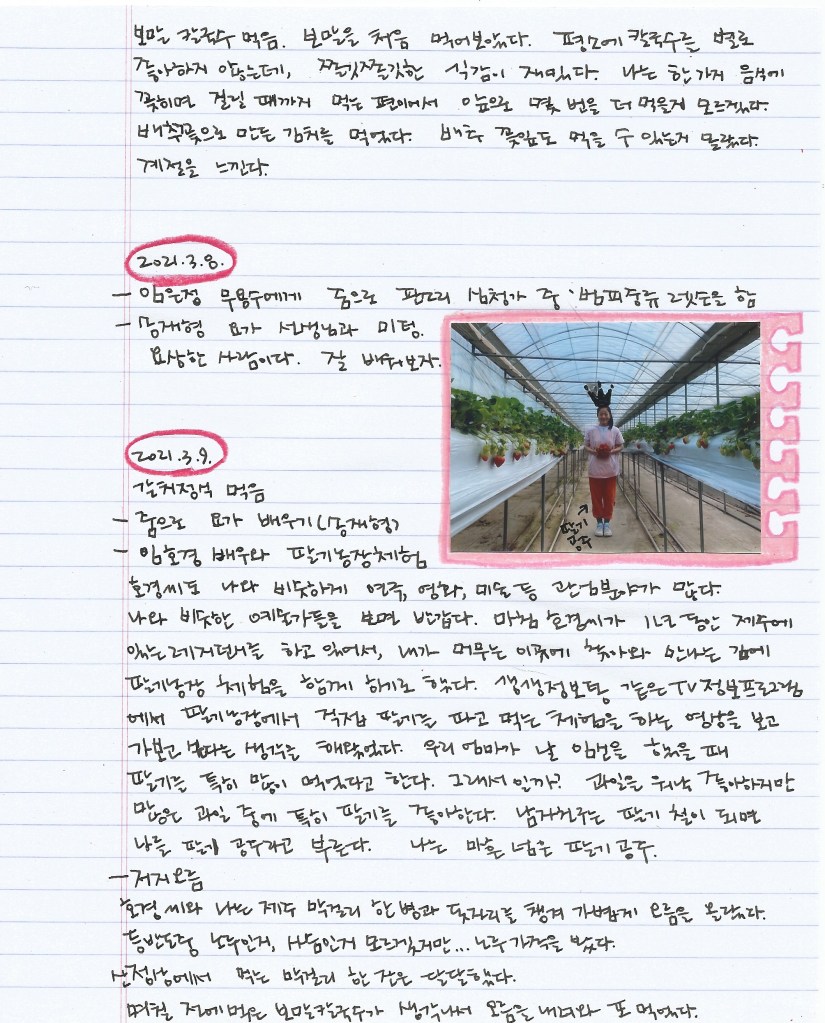 보말 칼국수 먹음. 보말을 처음 먹어보았다. 평소에 칼국수를 별로
좋아하지 않는데, 쫄깃쫄깃한 식감이 재밌다. 나는 한가지 음식에
꽂히면 질릴 때까지 먹는 편이여서 앞으로 몇 번을 더 먹을지 모르겠다.
배추꽃으로 만든 김치를 먹었다. 배추 꽃잎도 먹을 수 있는지 몰랐다.
계절을 느낀다.
2021.3.8.
- 임은정 무용수에게 줌으로 판소리 심청가 중 '범피중류 레슨을 함
- 송재형 요가 선생님과 미팅.
요상한 사람이다. 잘 배워보자.
2021.3.9.
갈치정식 먹음
- 줌으로 요가 배우기(송재형)
- 임호경 배우와 딸기농장체험
딸기
공주
호경씨도 나와 비슷하게 연극, 영화, 미술 등 관심분야가 많다.
나와 비슷한 예술가들을 보면 반갑다. 마침 호경씨가 1년 동안 제주에
있는 레지던시를 하고 있어서, 내가 머무는 이곳에 찾아와 만나는 김에
딸기농장 체험을 함께 하기로 했다. 생생정보통 같은 TV정보프로그램
에서 딸기농장에서 직접 딸기를 따고 먹는 체험을 하는 영상을 보고
가보고 싶다는 생각을 해왔었다. 우리 엄마가 날 임신을 했을 때
딸기를 특히 많이 먹었다고 한다. 그래서 일까? 과일을 워낙 좋아하지만
많은 과일 중에 특히 딸기를 좋아한다. 남자친구는 딸기 철이 되면
나를 딸기 공주라고 부른다. 나는 마흔 넘은 딸기공주.
- 저지오름
호경씨와 나는 제주 막걸리 한 병과 돗자리를 챙겨 가볍게 오름을 올랐다.
등반도중 노루인지, 사슴인지 모르겠지만... 노루가족을 봤다.
산 정상에서 먹는 막걸리 한 잔은 달달했다.
며칠 전에 먹은 보말칼국수가 생각나서 오름을 내려와 또 먹었다.